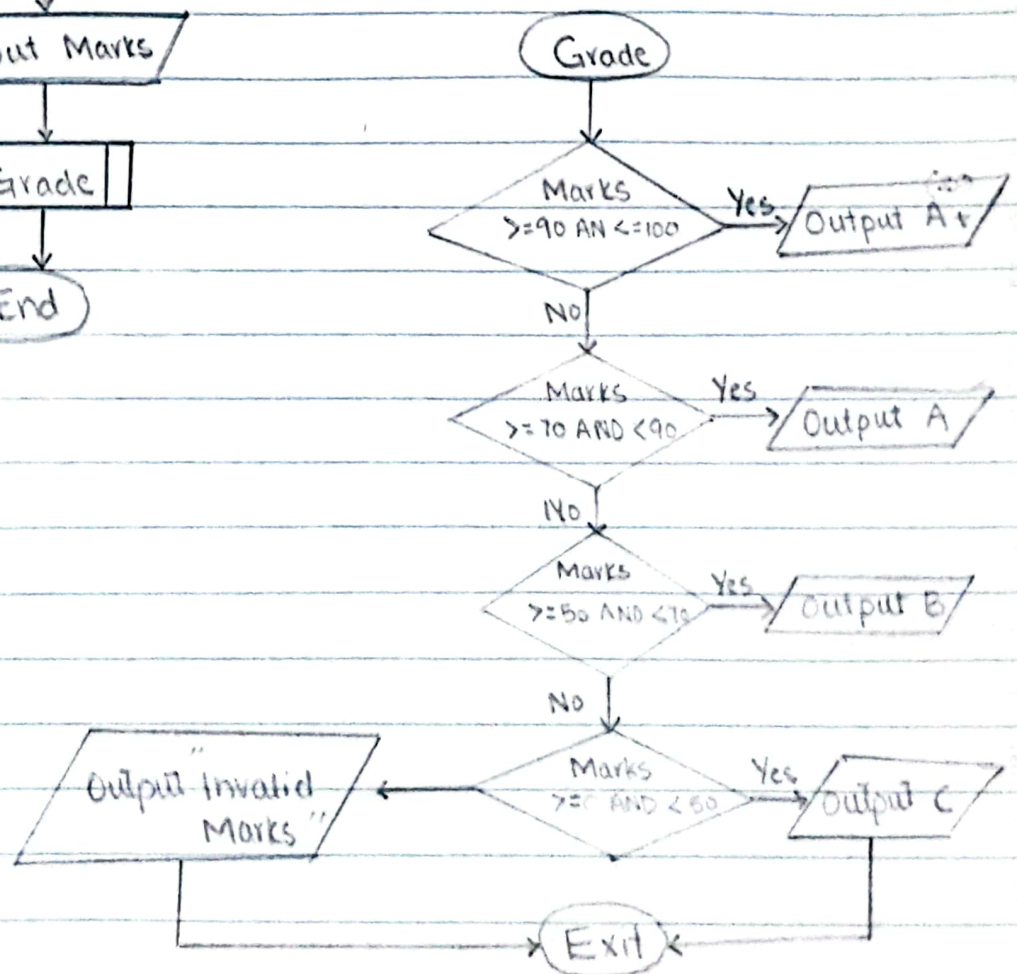 ut Marks
Grade
End
Grade
Marks
>=90 AN <=100
Yes
Output A+
NO
Marks
>=70 AND <90
Yes
Output A
NO
Marks
>=50 AND <70
Yes
Output B
NO
Marks
>= AND <50
Yes
Output C
Output "Invalid
Marks"
Exit